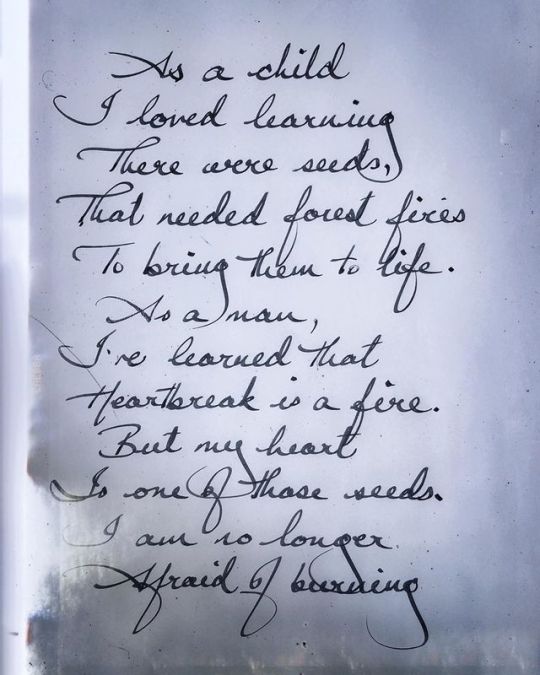 As a child
I loved learning
There were seeds,
That needed forest fires
To bring them to life.
As a man,
I've learned that
Heartbreak is a fire.
But my heart
Is one of those seeds.
I am no longer
Afraid of burning